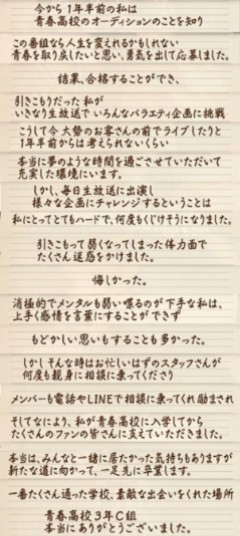 今から１年半前の私は
青春高校のオーディションのことを知り
この番組なら人生を変えれるかもしれない
青春を取り戻したいと思い、勇気を出して応募しました。
結果、合格することができ、
引きこもりだった私が
いきなり生放送でいろんなバラエティ企画に挑戦
こうして今大勢のお客さんの前でライブしたりと
１年半前からは考えられないくらい
本当に夢のような時間を過ごさせていただいて
充実した環境にいます。
しかし、毎日生放送に出演し
様々な企画にチャレンジするということは
私にとってとてもハードで、何度もくじけそうになりました。
引きこもって弱くなってしまった体力面で
たくさん迷惑をかけました。
悔しかった。
消極的でメンタルも弱い喋るのが下手な私は、
上手く感情を言葉にすることができず
もどかしい思いもすることも多かった。
しかしそんな時はお忙しいはずのスタッフさんが
何度も親身に相談に乗ってくださり
メンバーも電話やLINEで相談に乗ってくれ励まされ
そしてなにより、私が青春高校に入学してから
たくさんのファンの皆さんに支えていただきました。
本当は、みんなと一緒に居たかった気持ちもありますが
新たな道に向かって、一足先に卒業します。
一番たくさん通った学校、素敵な出会いをくれた場所
青春高校３年C組
本当にありがとうございました。